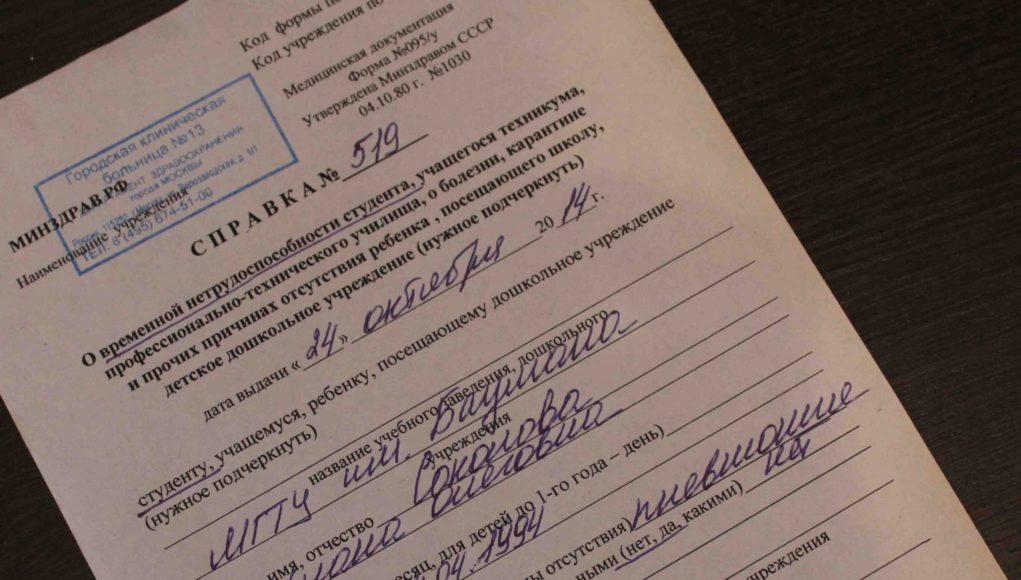 Код формы по
Код учреждения по
Медицинская документация
Форма №095/у
Утверждена Минздравом СССР
04.10.80 г. №1030
Городская клиническая
больница №13
ДЕПАРТАМЕНТ ЗДРАВООХРАНЕНИЯ
города МОСКВЫ
ТЕЛ. 8 (495) 674-51-00
МИНЗДРАВ РФ
Наименование учреждения
СПРАВКА № 519
О временной нетрудоспособности студента, учащегося техникума,
профессионально-технического училища, о болезни, карантине
и прочих причинах отсутствия ребенка , посещающего школу,
детское дошкольное учреждение (нужное подчеркнуть)
дата выдачи « 24 » октября 20 14 г.
студенту, учащемуся, ребенку, посещающему дошкольное учреждение
(нужное подчеркнуть)
название учебного заведения, дошкольного
учреждения
МГТУ им. Баумана
имя, отчество Соколова
Олеговна
месяц, для детей до 1-го года – день)
04.1994
отсутствия) пневмония
ными (нет, да, какими) нет
учреждения